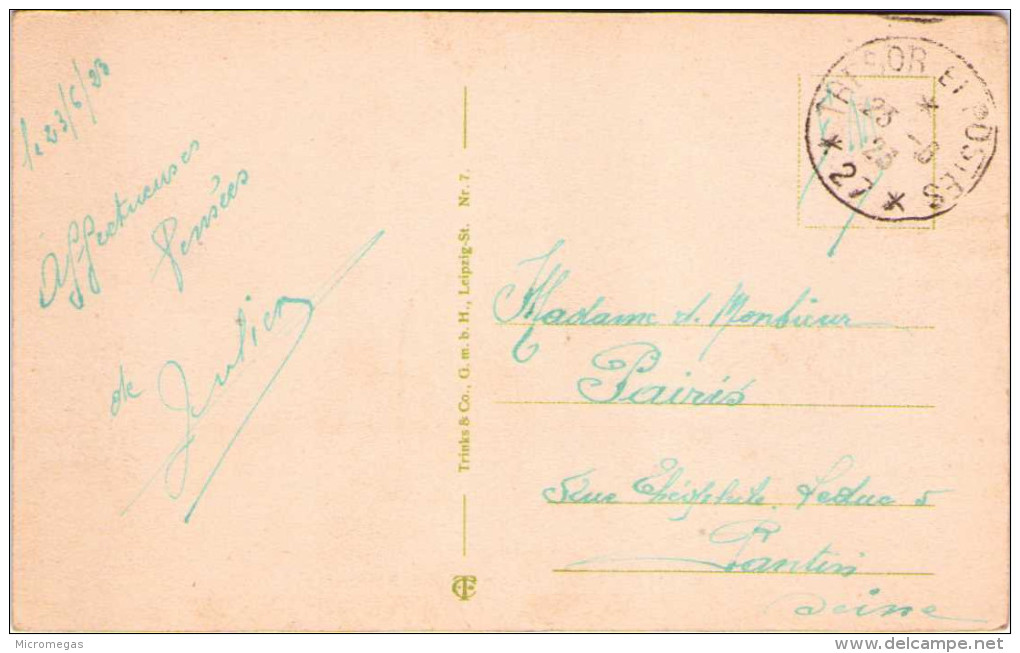 le 23/6/23
Affectueuses
Pensées
de
Julien
Trinks & Co., G. m. b. H., Leipzig-St. Nr. 7.
TRESOR ET POSTES
23 -6
23
* 27 *
Madame & Monsieur
Pairis
5 Rue Théophile Leduc 5
Pantin
Seine
Micromegas
www.delcampe.net